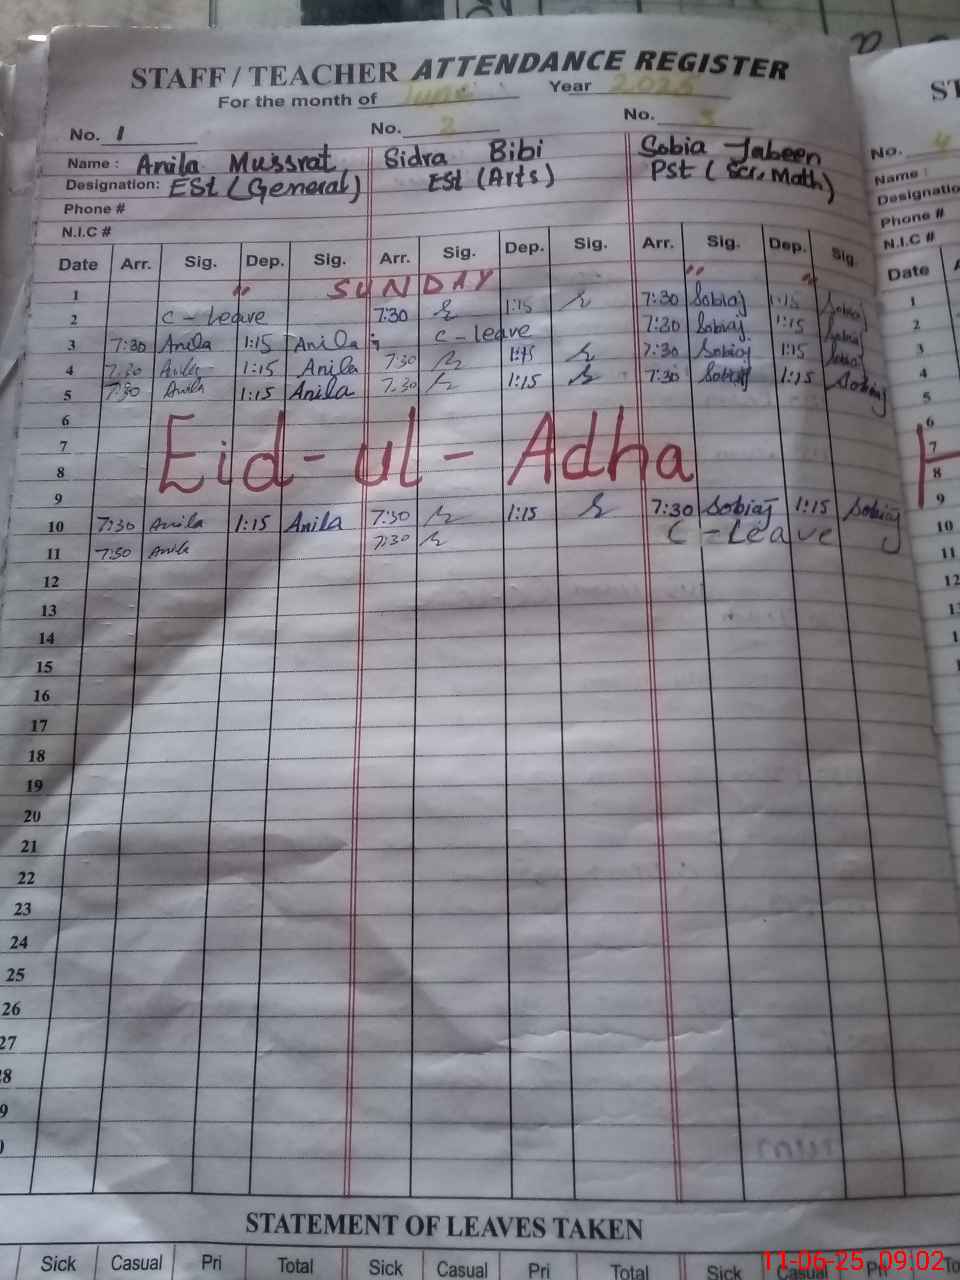 STAFF / TEACHER ATTENDANCE REGISTER
For the month of June Year 2025
No. 1 No. 2 No. 3
Name : Anila Mussrat Sidra Bibi Sobia Jabeen
Designation: ESt (General) ESt (Arts) PSt ( Sci, Math)
Phone #
N.I.C #
Date Arr. Sig. Dep. Sig. Arr. Sig. Dep. Sig. Arr. Sig. Dep. Sig.
1 " SUNDAY " "
2 C - Leave 7:30 1:15 7:30 Sobiaj 1:15 Sobiaj
3 7:30 Anila 1:15 Anila C - leave 7:30 Sobiaj 1:15 Sobiaj
4 7:30 Anila 1:15 Anila 7:30 1:15 7:30 Sobiaj 1:15 Sobiaj
5 7:30 Anila 1:15 Anila 7:30 1:15 7:30 Sobiaj 1:15 Sobiaj
6
7 Eid - ul - Adha
8
9
10 7:30 Anila 1:15 Anila 7:30 1:15 7:30 Sobiaj 1:15 Sobiaj
11 7:30 Anila 7:30 C - Leave
12
13
14
15
16
17
18
19
20
21
22
23
24
25
26
27
8
9
STATEMENT OF LEAVES TAKEN
Sick Casual Pri Total Sick Casual Pri Total Sick Casual Pri
ST
No. 4
Name :
Designatio
Phone #
N.I.C #
Date
1
2
3
4
5
6
7
8
9
10
11
12
11-06-25 09:02